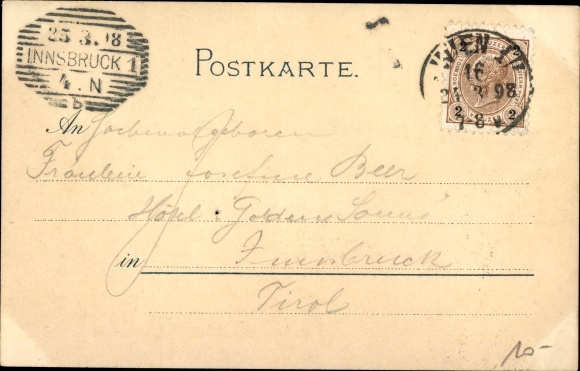 25 3.98
INNSBRUCK 1
4. N
b
WIEN 1
16
3 98
1-8
2 2
POSTKARTE.
An Hochwolgeboren
Fräulein Josefine Beer
Hôtel „Goldene Sonne“
in Innsbruck
Tirol
10-